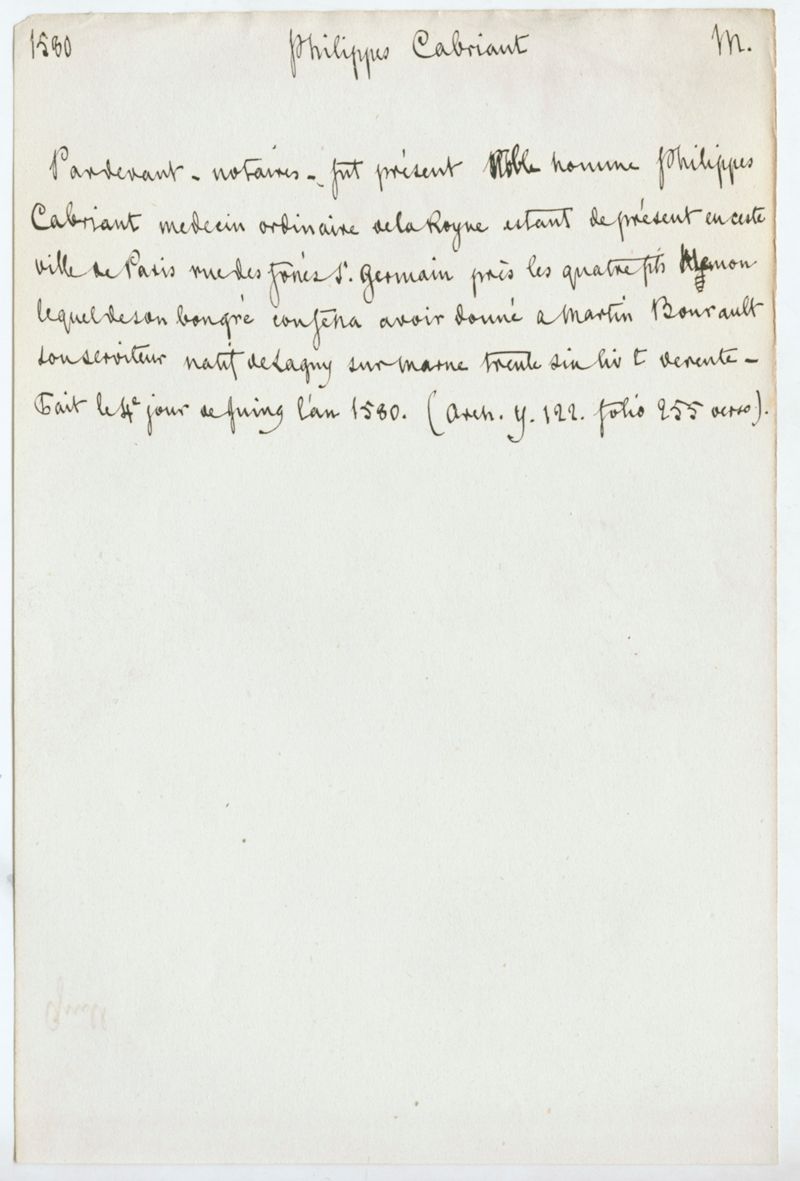 1580 Philippes Cabriant M.
Pardevant - notaires - fut présent Noble homme Philippes
Cabriant medecin ordinaire de la Royne estant de présent en ceste
ville de Paris rue des fossés St. Germain près les quatre fils Aymon
lequel de son bon gré confessa avoir donné a Martin Bourault
son serviteur natif de Lagny sur Marne trente six liv t de rente -
Fait le 4e jour de Juing l'an 1580. (Arch. Y. 122. folio 255 verso).